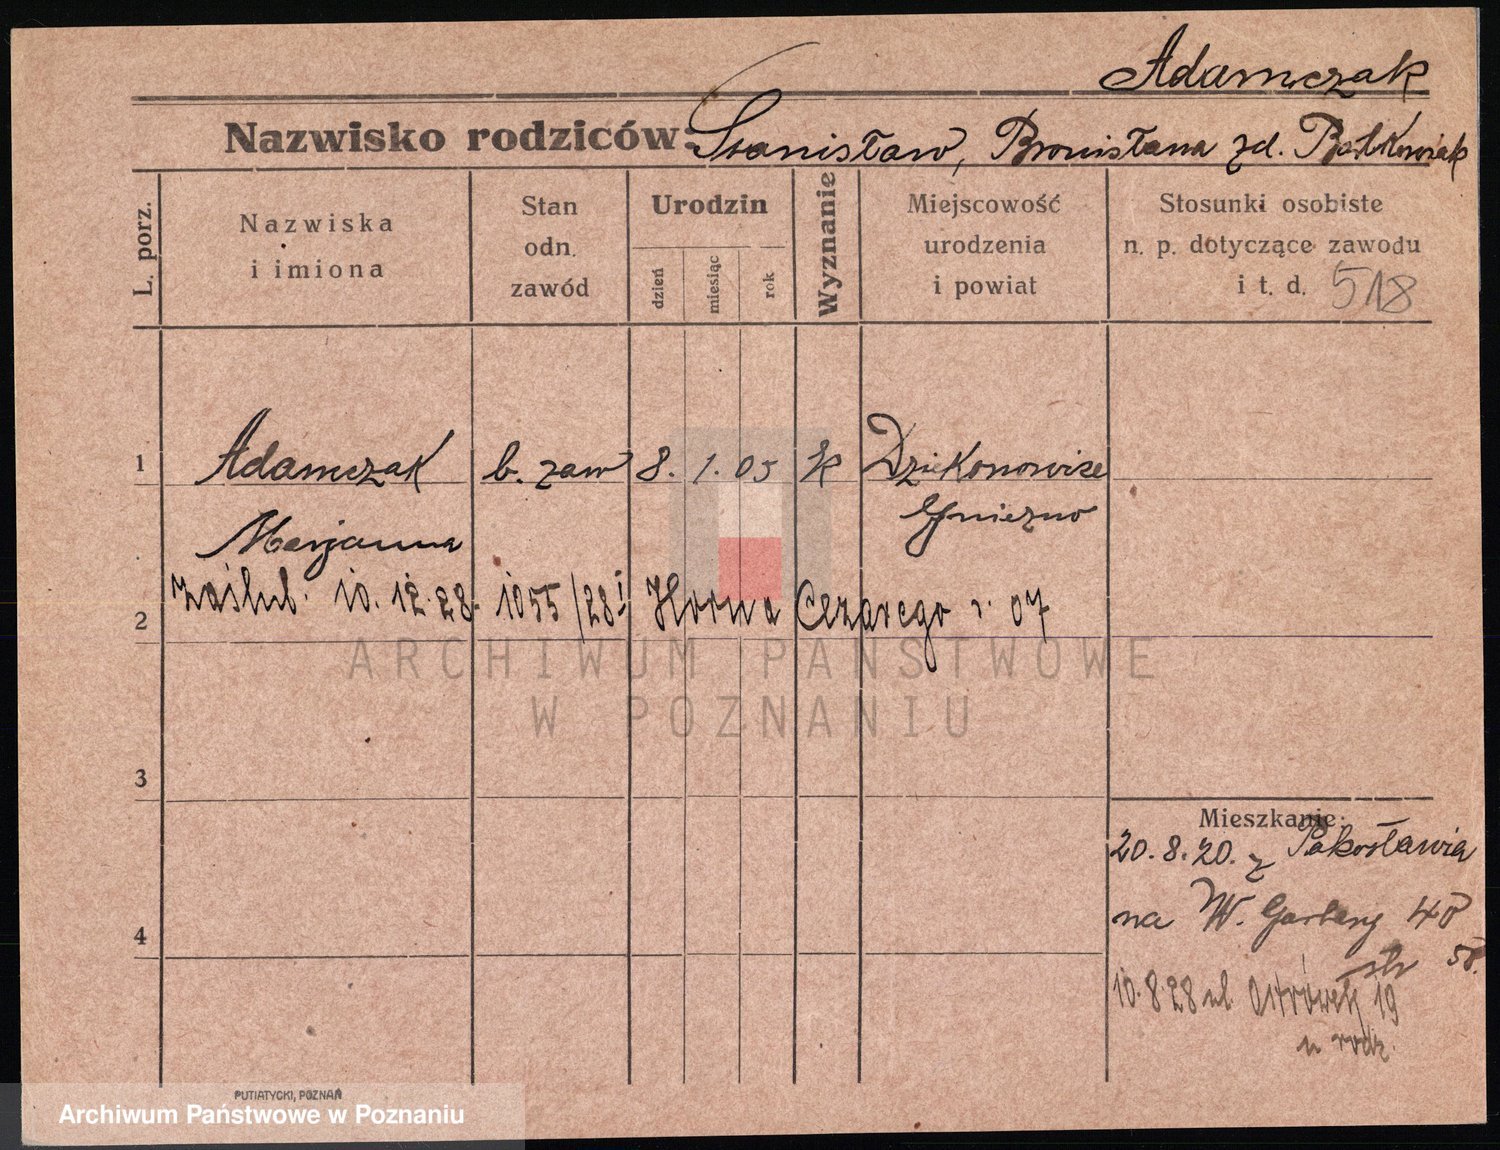 Adamczak
Nazwisko rodziców: Stanisław, Bronisława zd. Bartkowiak
L. porz.
Nazwiska
i imiona
Stan
odn.
zawód
Urodzin
dzień
miesiąc
rok
Wyznanie
Miejscowość
urodzenia
i powiat
Stosunki osobiste
n. p. dotyczące zawodu
i t. d. 518
1 Adamczak b. zaw 8. 1. 05 k Dziekonowice
Gniezno
Marjanna
zaślub. 10. 12. 28. 1055/28 I Horna Cezarego r. 07
2
ARCHIWUM PAŃSTWOWE
W POZNANIU
3
Mieszkanie:
20. 8. 20. z Pakosławia
na W. Garbary 48
4
str 58.
10. 8 28 ul. Ostrówek 19
u rodz.
PUTIATYCKI, POZNAŃ
Archiwum Państwowe w Poznaniu